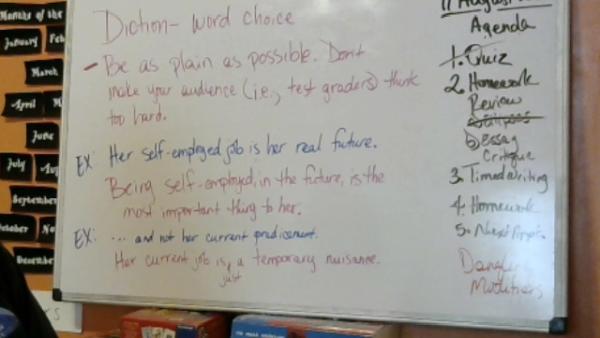 Diction- word choice
- Be as plain as possible. Don't
make your audience (i.e., test graders) think
too hard.
EX: Her self-employed job is her real future.
Being self-employed, in the future, is the
most important thing to her.
EX: ... and not her current predicament.
Her current job is just a temporary nuisance.
11 August
Agenda
1. Quiz
2. Homework
Review
b) Essay
Critique
3. Timed Writing
4. Homework
5.
Modifiers
Months of the
January
Feb
March
April
M
June
July
Aug
September
October
No
December